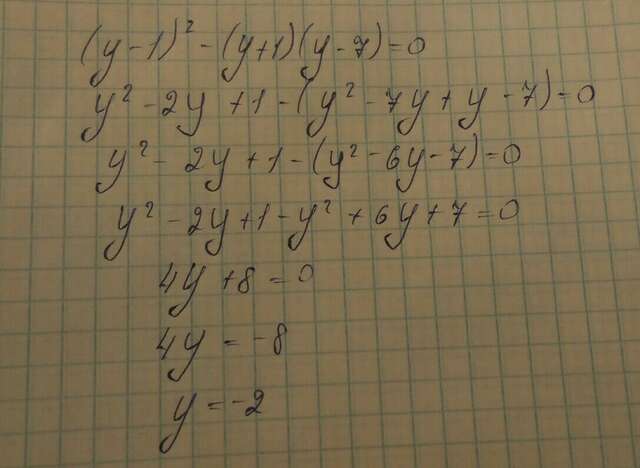 (y-1)² - (y+1)(y-7)=0
y² - 2y + 1 - (y² - 7y + y - 7)=0
y² - 2y + 1 - (y² - 6y - 7)=0
y² - 2y + 1 - y² + 6y + 7 = 0
4y + 8 = 0
4y = -8
y = -2